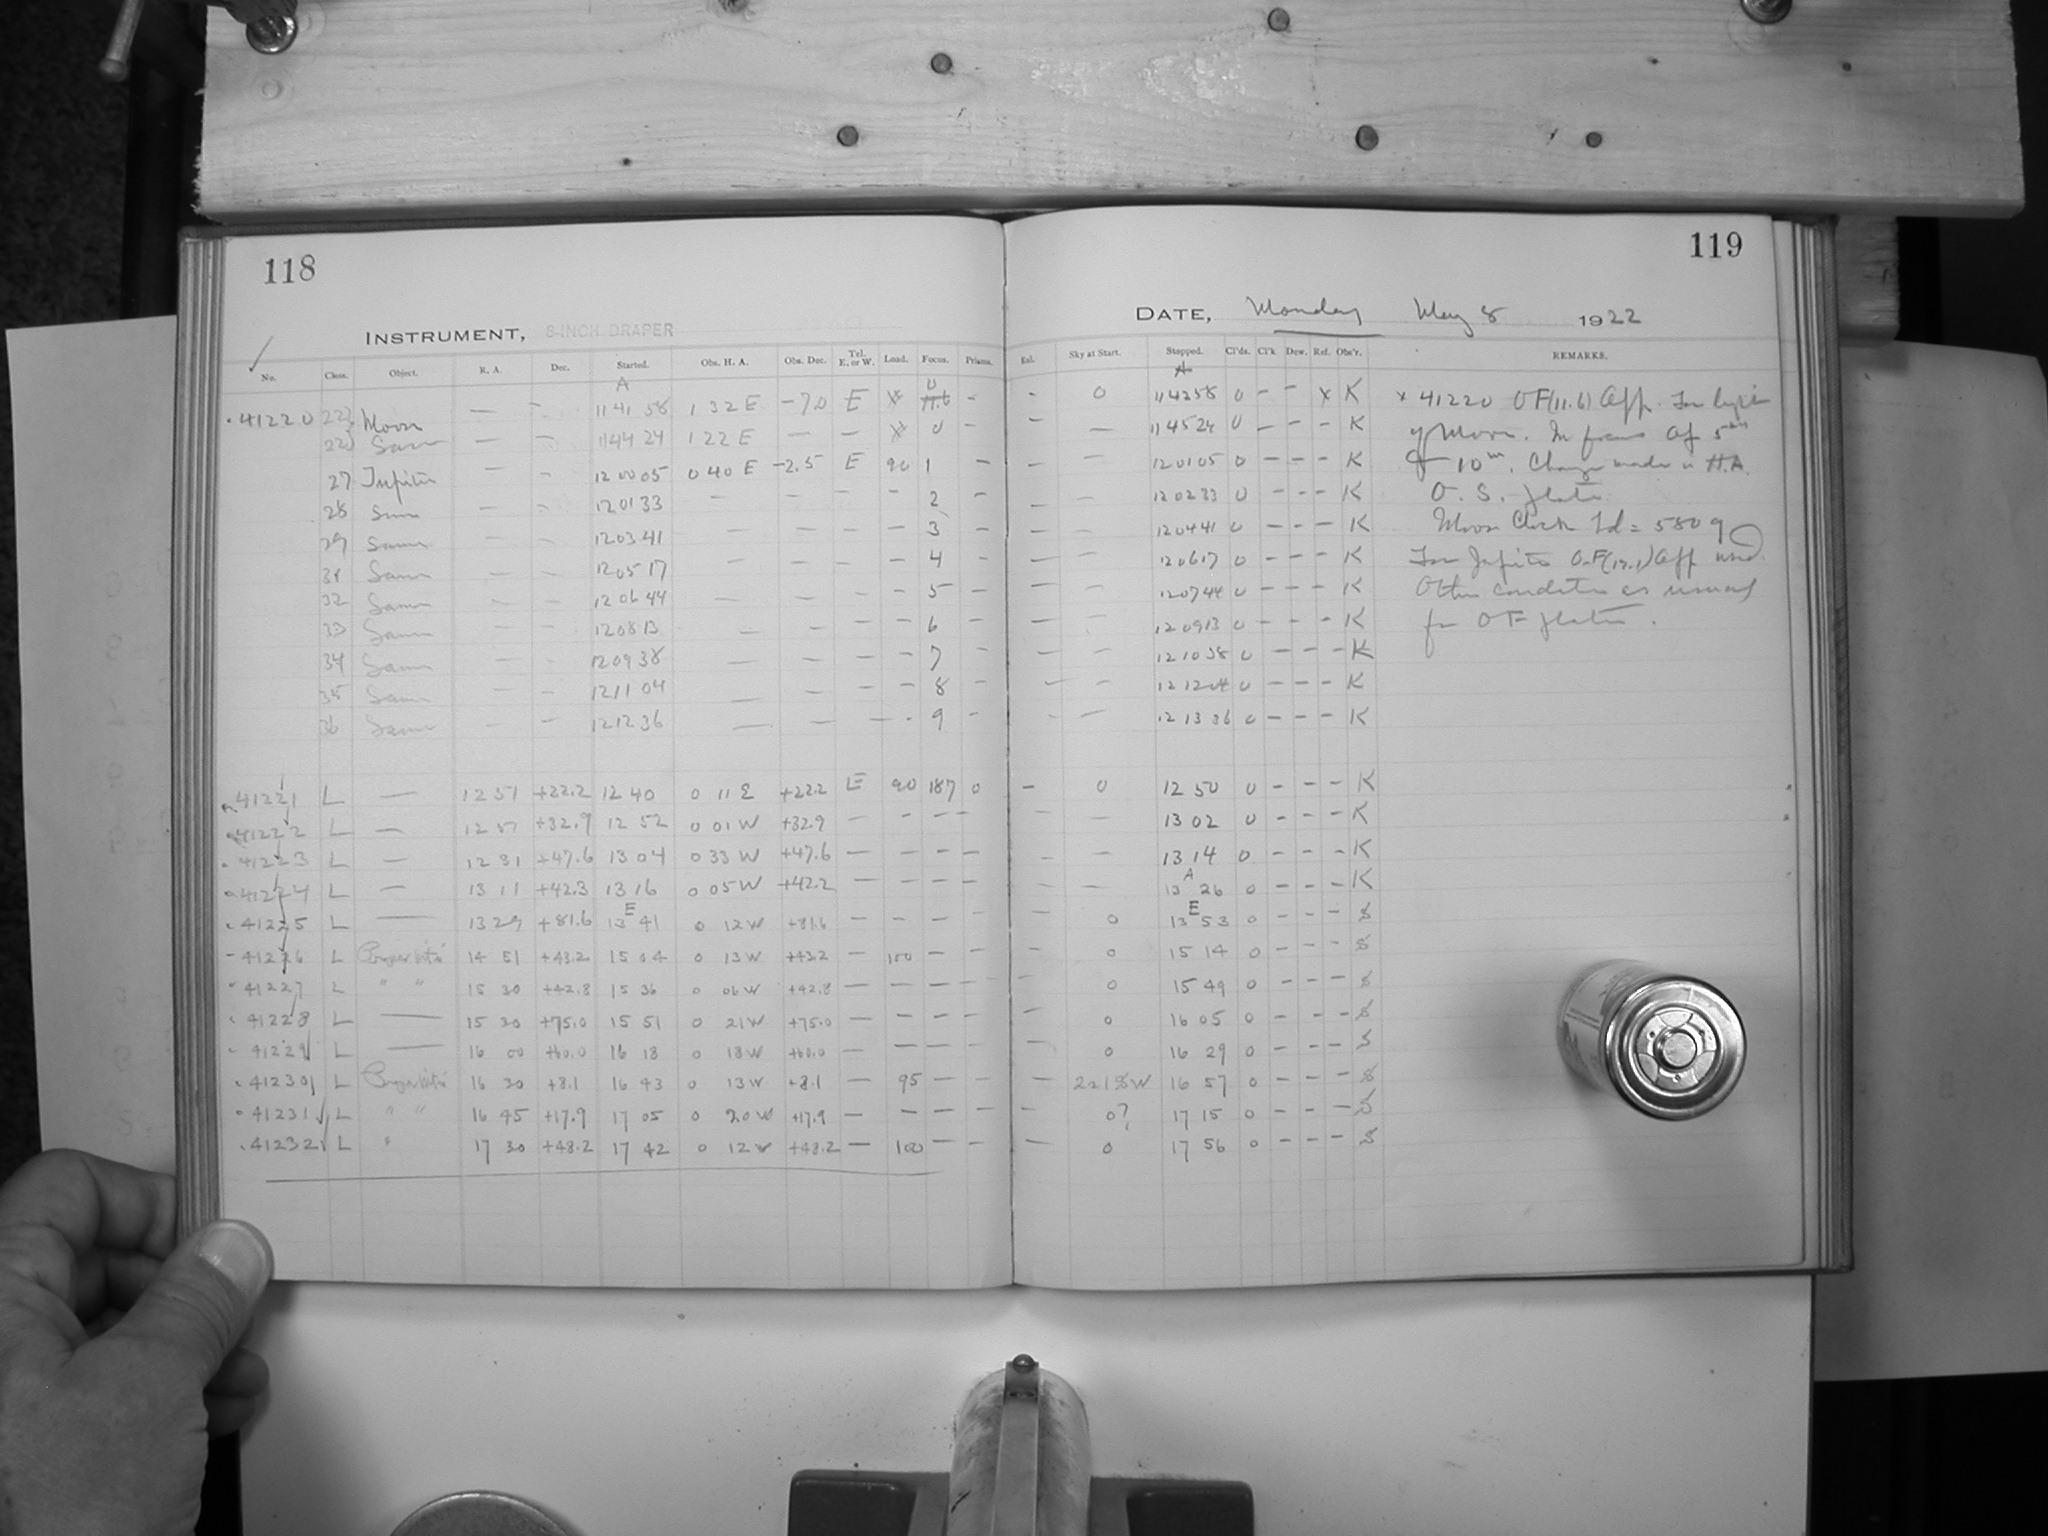 118
119
INSTRUMENT, 8-INCH DRAPER
DATE, Monday May 8 1922
No. Class. Object. R. A. Dec. Started. Obs. H. A. Obs. Dec. Tel. E. or W. Load. Focus. Prisms. Exl. Sky at Start. Stopped. Cl'ds. Cl'k Dew. Ref. Obs'r. REMARKS.
41220 Moon — – A 11 41 58 1 32 E −7.0 E x 0 - - 0 11 42 58 0 – – x K
Same — – 11 44 24 1 22 E — — x 0 – – — 11 45 24 0 – – – K
27 Jupiter — – 12 00 05 0 40 E −2.5 E 90 1 – – – 12 01 05 0 – – – K
28 Same — – 12 01 33 – – – – 2 – – – 12 02 33 0 – – – K
29 Same — – 12 03 41 – – – – 3 – – – 12 04 41 0 – – – K
31 Same — – 12 05 17 – – – – 4 – – – 12 06 17 0 – – – K
32 Same – – 12 06 44 – – – – 5 – – – 12 07 44 0 – – – K
33 Same – – 12 08 13 – – – – 6 – – – 12 09 13 0 – – – K
34 Same – – 12 09 38 – – – – 7 – – – 12 10 38 0 – – – K
35 Same – – 12 11 04 – – – – 8 – – – 12 12 04 0 – – – K
36 Same – – 12 12 36 – – – – 9 – – – 12 13 36 0 – – – K
41221 L — 12 51 +22.2 12 40 0 11 E +22.2 E 90 187 0 – 0 12 50 0 – – – K
41222 L — 12 51 +32.9 12 52 0 01 W +32.9 – – – – – — 13 02 0 – – – K
41223 L — 12 31 +47.6 13 04 0 33 W +47.6 – – – – – — 13 14 0 – – – K
41224 L — 13 11 +42.3 13 16 0 05 W +42.2 – – – – – — A 13 26 0 – – – K
41225 L — 13 29 +81.6 E 13 41 0 12 W +81.6 – – – – – 0 E 13 53 0 – – – S
41226 L 14 51 +43.2 15 04 0 13 W +43.2 – 100 – – – 0 15 14 0 – – – S
41227 L " " 15 30 +42.8 15 36 0 06 W +42.8 – – – – – 0 15 49 0 – – – S
41228 L — 15 30 +75.0 15 51 0 21 W +75.0 – – – – – 0 16 05 0 – – – S
41229 L — 16 00 +60.0 16 18 0 18 W +60.0 – – – – – 0 16 29 0 – – – S
41230 L 16 30 +8.1 16 43 0 13 W +8.1 – 95 – – – 16 57 0 – – – S
41231 L " " 16 45 +17.9 17 05 0 20 W +17.9 – – – – – 0? 17 15 0 – – – S
41232 L " 17 30 +48.2 17 42 0 12 W +48.2 – 100 – – – 0 17 56 0 – – – S
x 41220 OF(11.6) App. For
of Moon. In focus of 5
10m. Change made in H.A.
O. S. plate
Moon Clock Ld = 580 g
For Jupiter O.F.(12.1) App used.
Other conditions as usual
for OF plates.